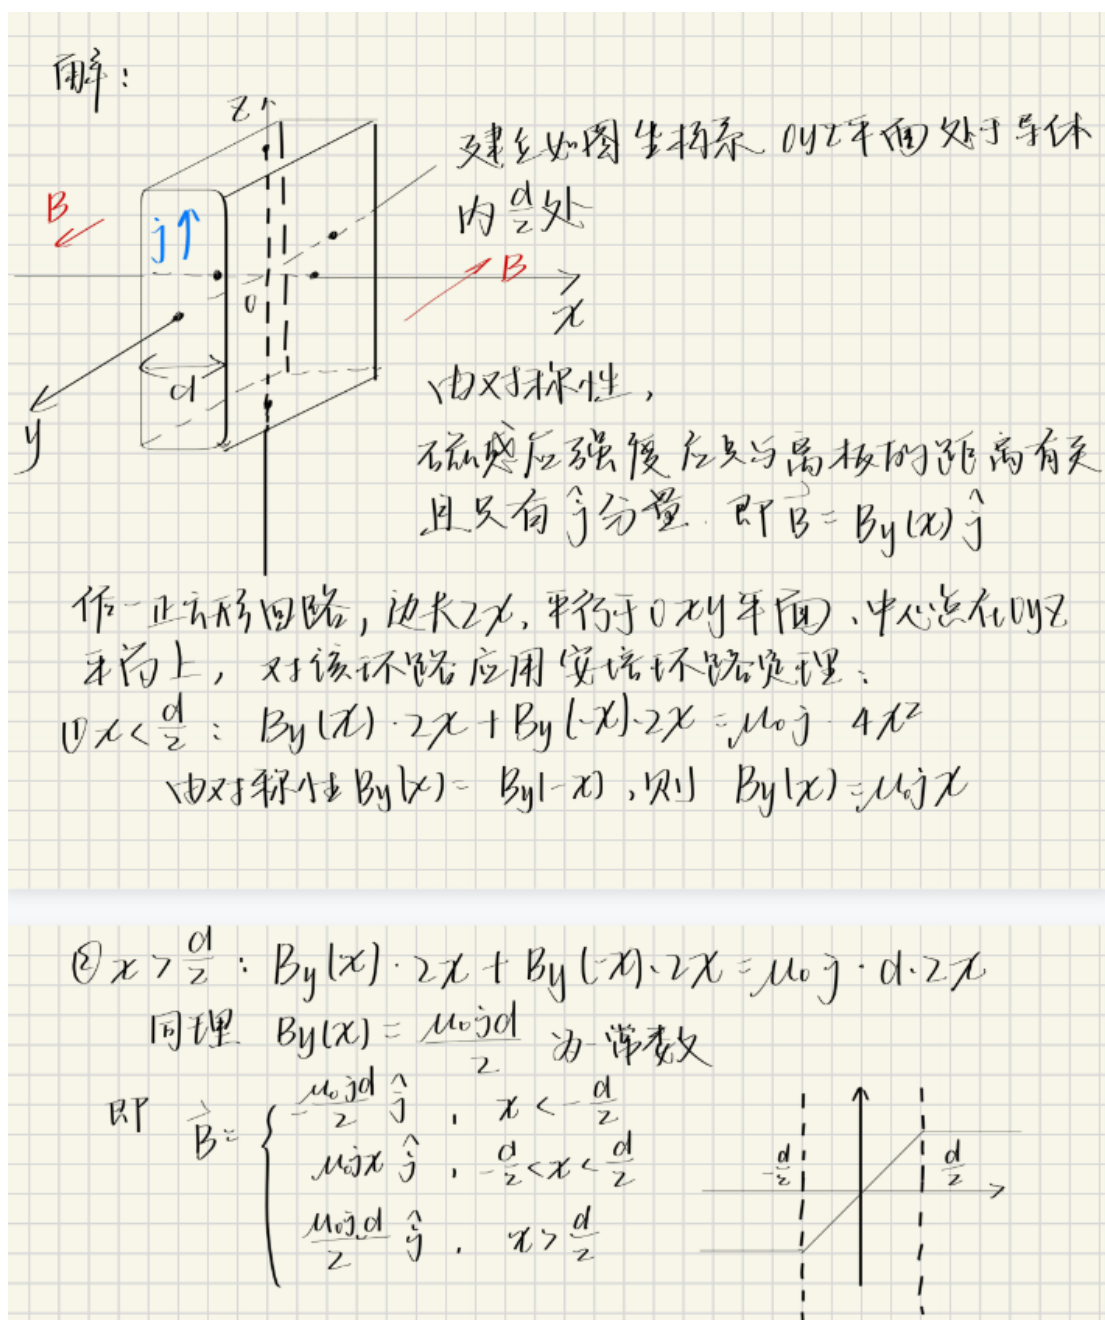 解:
z
建立如图坐标系 oyz平面处于导体
内 d/2 处
B
j
B
o
x
d
y
由对称性,
磁感应强度应只与离板的距离有关
且只有 ĵ 分量. 即 B⃗ = By(x) ĵ
作一正方形回路, 边长2x, 平行于oxy平面、中心点在oyz
平面上, 对该环路应用安培环路定理:
① x < d/2 : By(x)·2x + By(-x)·2x = μ₀j · 4x²
由对称性 By(x) = By(-x), 则 By(x) = μ₀jx
② x > d/2 : By(x)·2x + By(-x)·2x = μ₀j·d·2x
同理 By(x) = μ₀jd/2 为一常数
即 B⃗ = { -μ₀jd/2 ĵ , x < -d/2
μ₀jx ĵ , -d/2 < x < d/2
μ₀jd/2 ĵ , x > d/2
-d/2
d/2